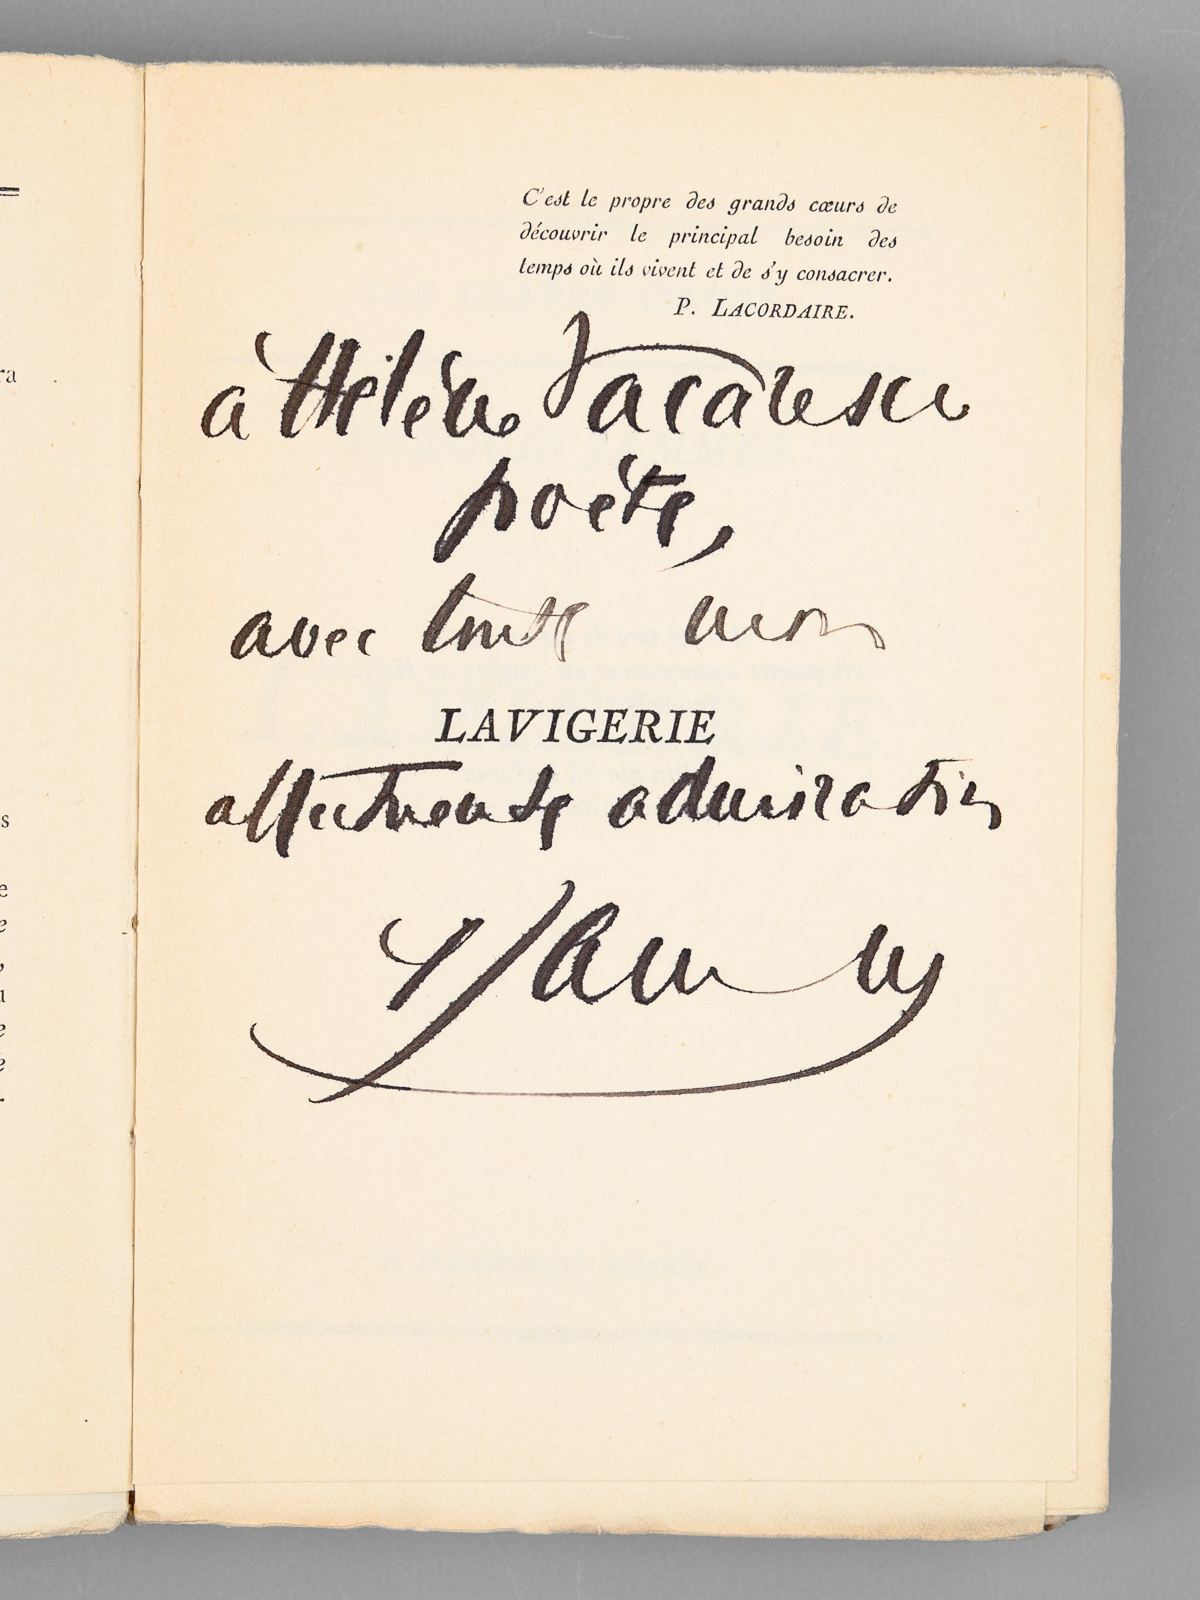 C'est le propre des grands cœurs de
découvrir le principal besoin des
temps où ils vivent et de s'y consacrer.
P. LACORDAIRE.
à Hélène Vacaresco
poète,
avec toute mon
LAVIGERIE
affectueuse admiration